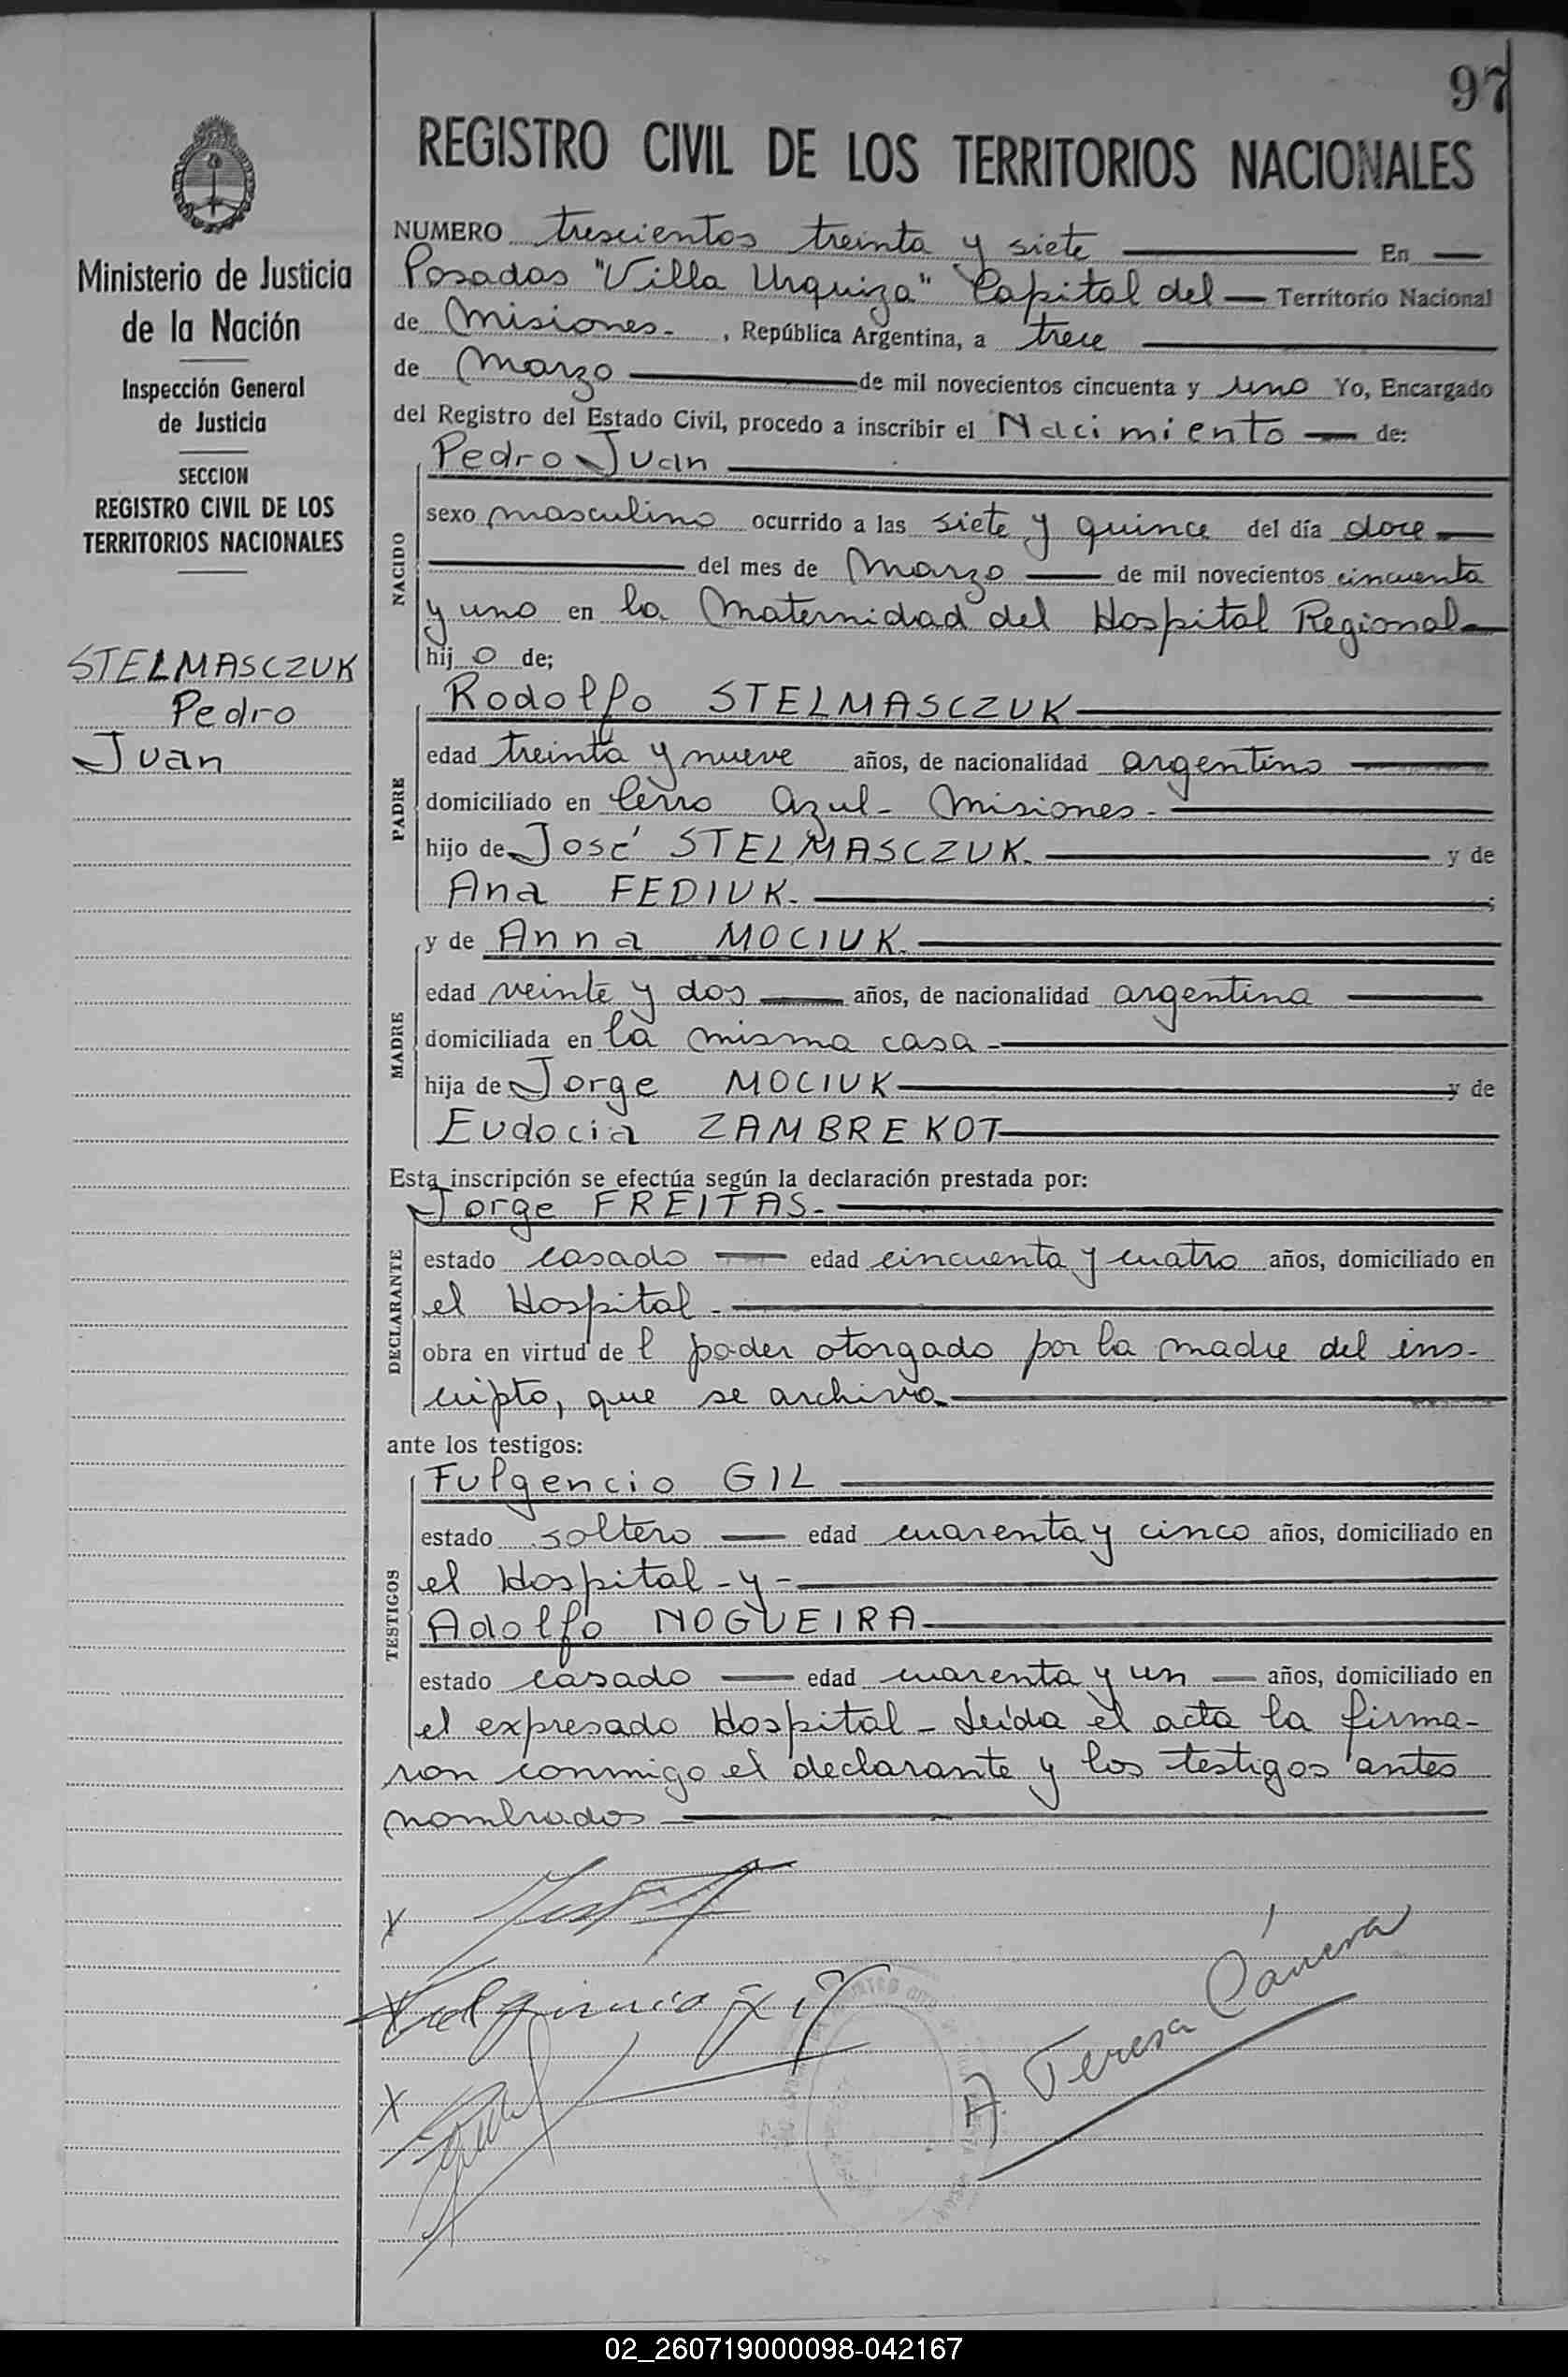 97
REGISTRO CIVIL DE LOS TERRITORIOS NACIONALES
Ministerio de Justicia
de la Nación
Inspección General
de Justicia
SECCION
REGISTRO CIVIL DE LOS
TERRITORIOS NACIONALES
STELMASCZUK
Pedro
Juan
NUMERO trescientos treinta y siete En
Posadas "Villa Urquiza" Capital del Territorio Nacional
de Misiones. , República Argentina, a trece
de Marzo de mil novecientos cincuenta y uno Yo, Encargado
del Registro del Estado Civil, procedo a inscribir el Nacimiento de:
NACIDO
Pedro Juan
sexo masculino ocurrido a las siete y quince del día doce
del mes de Marzo de mil novecientos cincuenta
y uno en la Maternidad del Hospital Regional
hij o de;
PADRE
Rodolfo STELMASCZUK
edad treinta y nueve años, de nacionalidad argentino
domiciliado en Cerro Azul - Misiones.
hijo de José STELMASCZUK. y de
Ana FEDIUK. ;
MADRE
y de Anna MOCIUK.
edad veinte y dos años, de nacionalidad argentina
domiciliada en la misma casa
hija de Jorge MOCIUK y de
Eudocia ZAMBREKOT
Esta inscripción se efectúa según la declaración prestada por:
DECLARANTE
Jorge FREITAS.
estado casado edad cincuenta y cuatro años, domiciliado en
el Hospital.
obra en virtud de l poder otorgado por la madre del ins-
cripto, que se archiva.
ante los testigos:
TESTIGOS
Fulgencio GIL
estado soltero edad cuarenta y cinco años, domiciliado en
el Hospital - y -
Adolfo NOGUEIRA
estado casado edad cuarenta y un años, domiciliado en
el expresado Hospital - Leída el acta la firma-
ron conmigo el declarante y los testigos antes
nombrados
X
Fulgencio Gil
X
A. Teresa Cánera
02_260719000098-042167